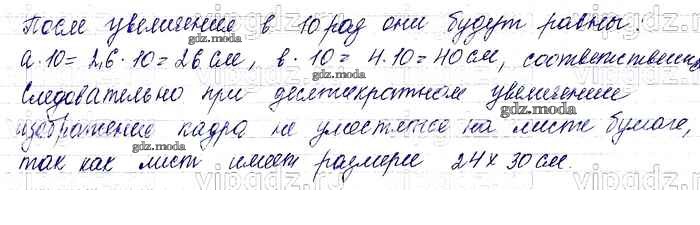 После увеличения в 10 раз они будут равны:
a·10 = 2,6·10 = 26 см, в·10 = 4·10 = 40 см, соответственно
Следовательно при десятикратном увеличение
изображение кадра не уместится на листе бумаге,
так как лист имеет размеры 24 х 30 см.
gdz.moda
gdz.moda
gdz.moda
gdz.moda
gdz.moda
gdz.moda
gdz.moda